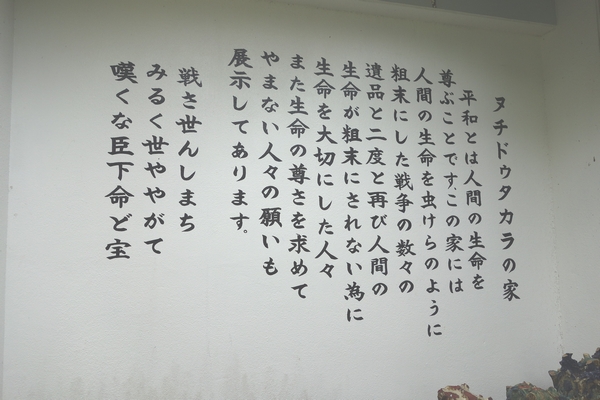 ヌチドゥタカラの家
平和とは人間の生命を
尊ぶことです。この家には
人間の生命を虫けらのように
粗末にした戦争の数々の
遺品と二度と再び人間の
生命が粗末にされない為に
生命を大切にした人々
また生命の尊さを求めて
やまない人々の願いも
展示してあります。
戦さ世んしまち
みるく世ややがて
嘆くな臣下命ど宝